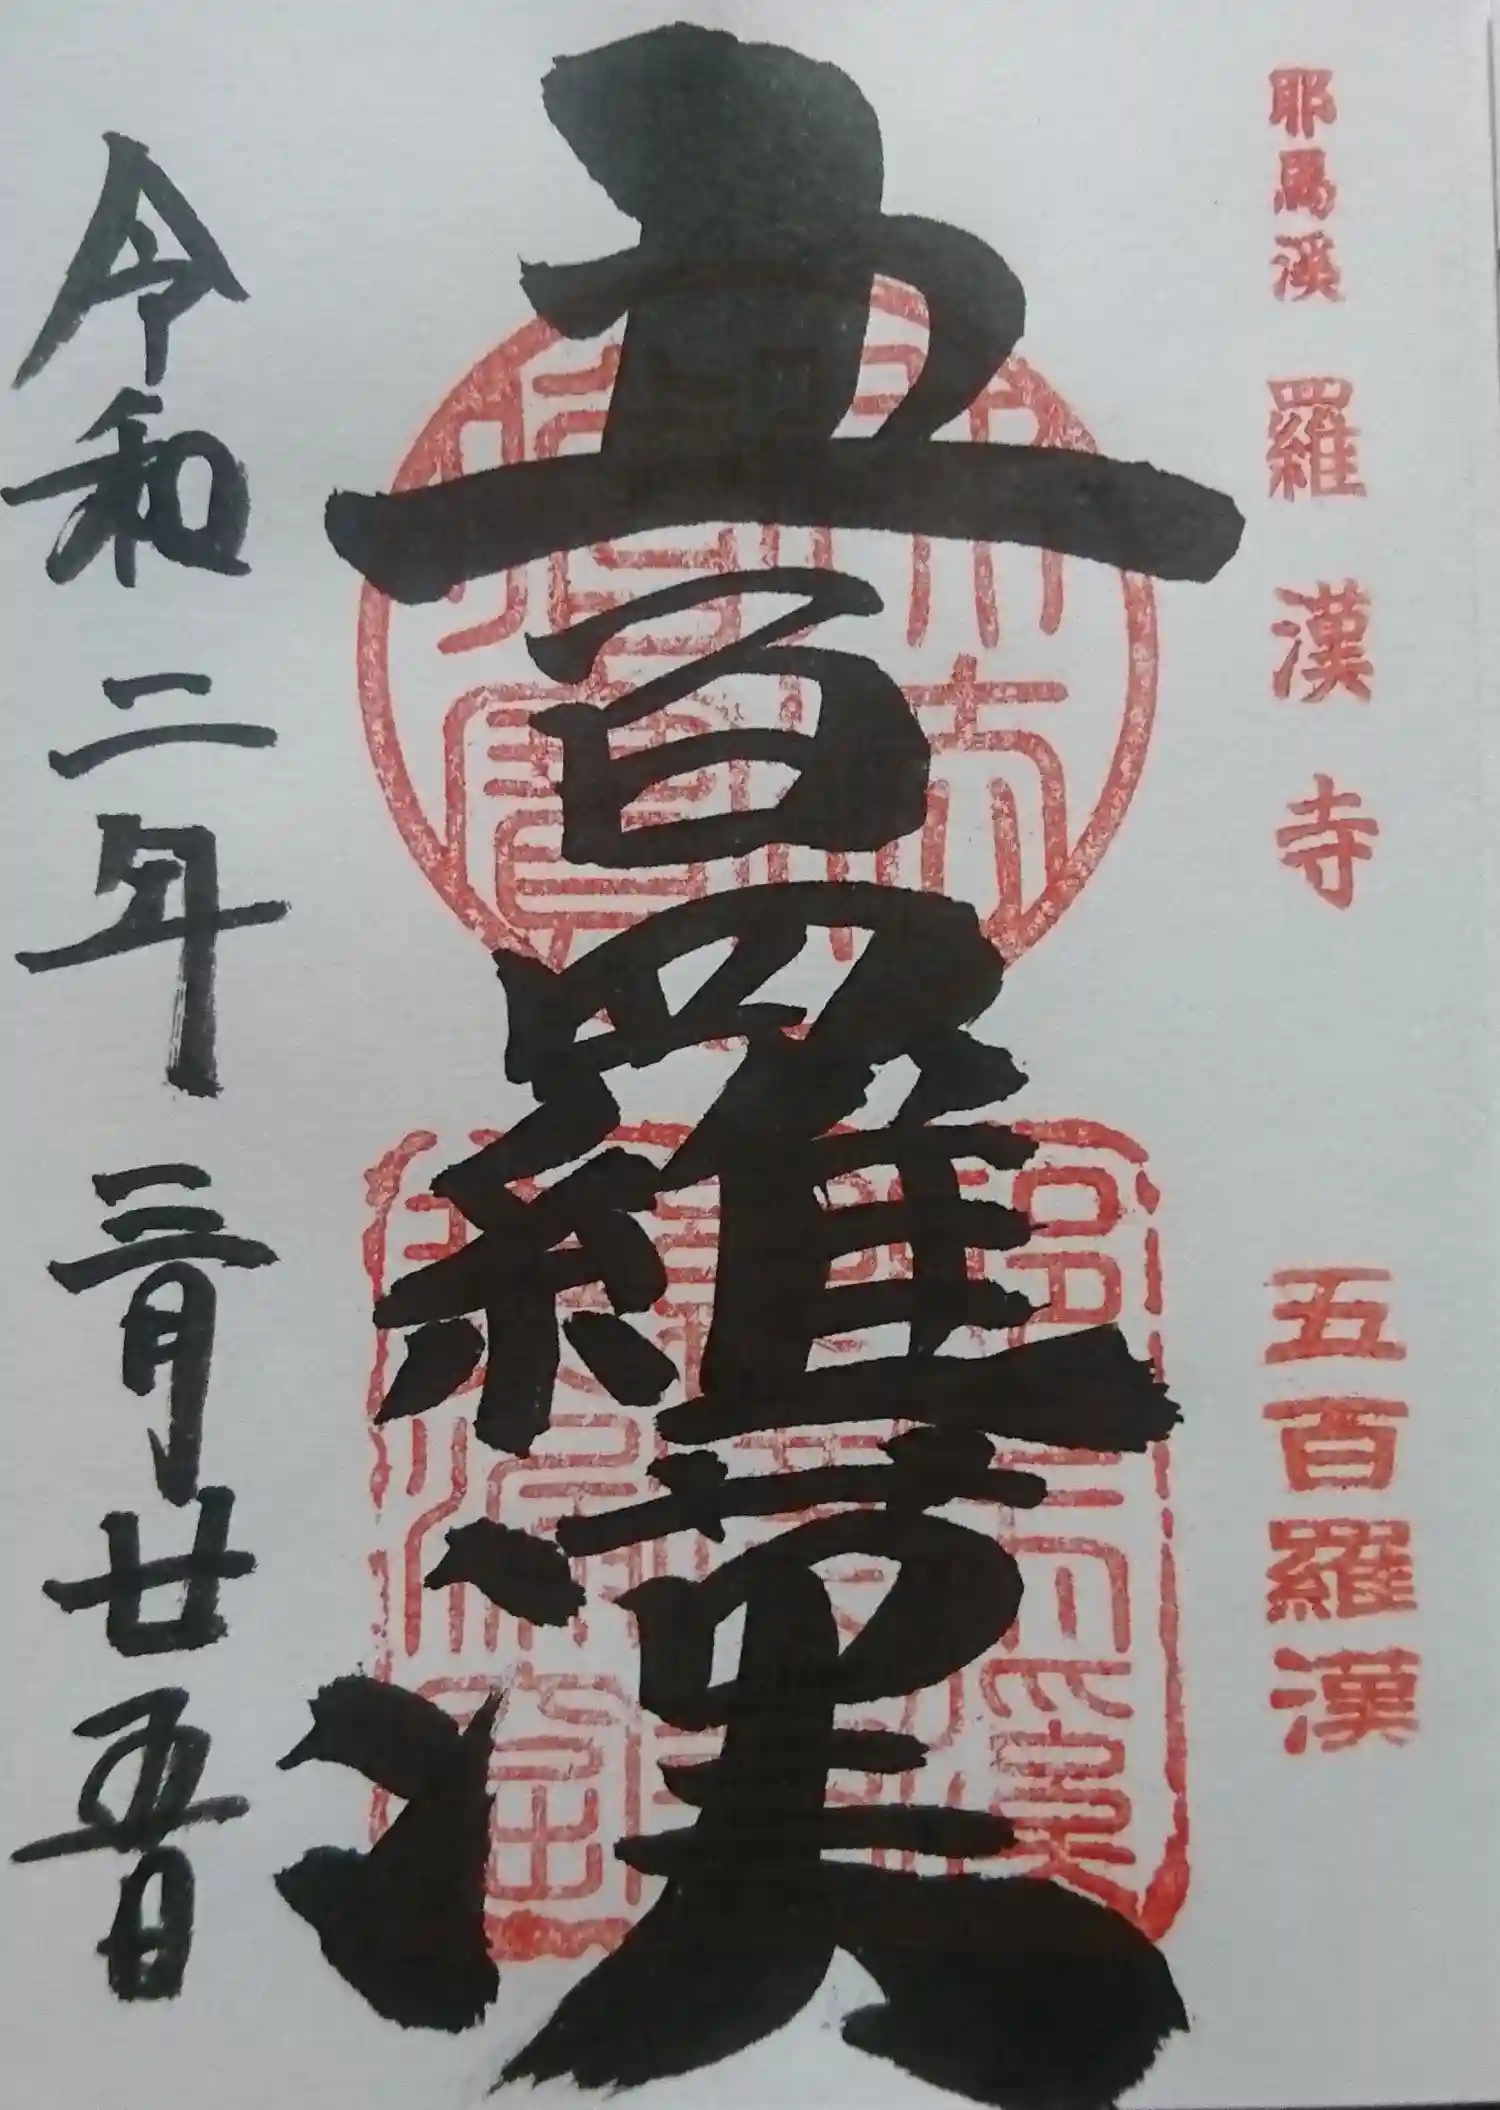 耶馬溪 羅漢寺 五百羅漢
五百羅漢
令和二年三月廿五日